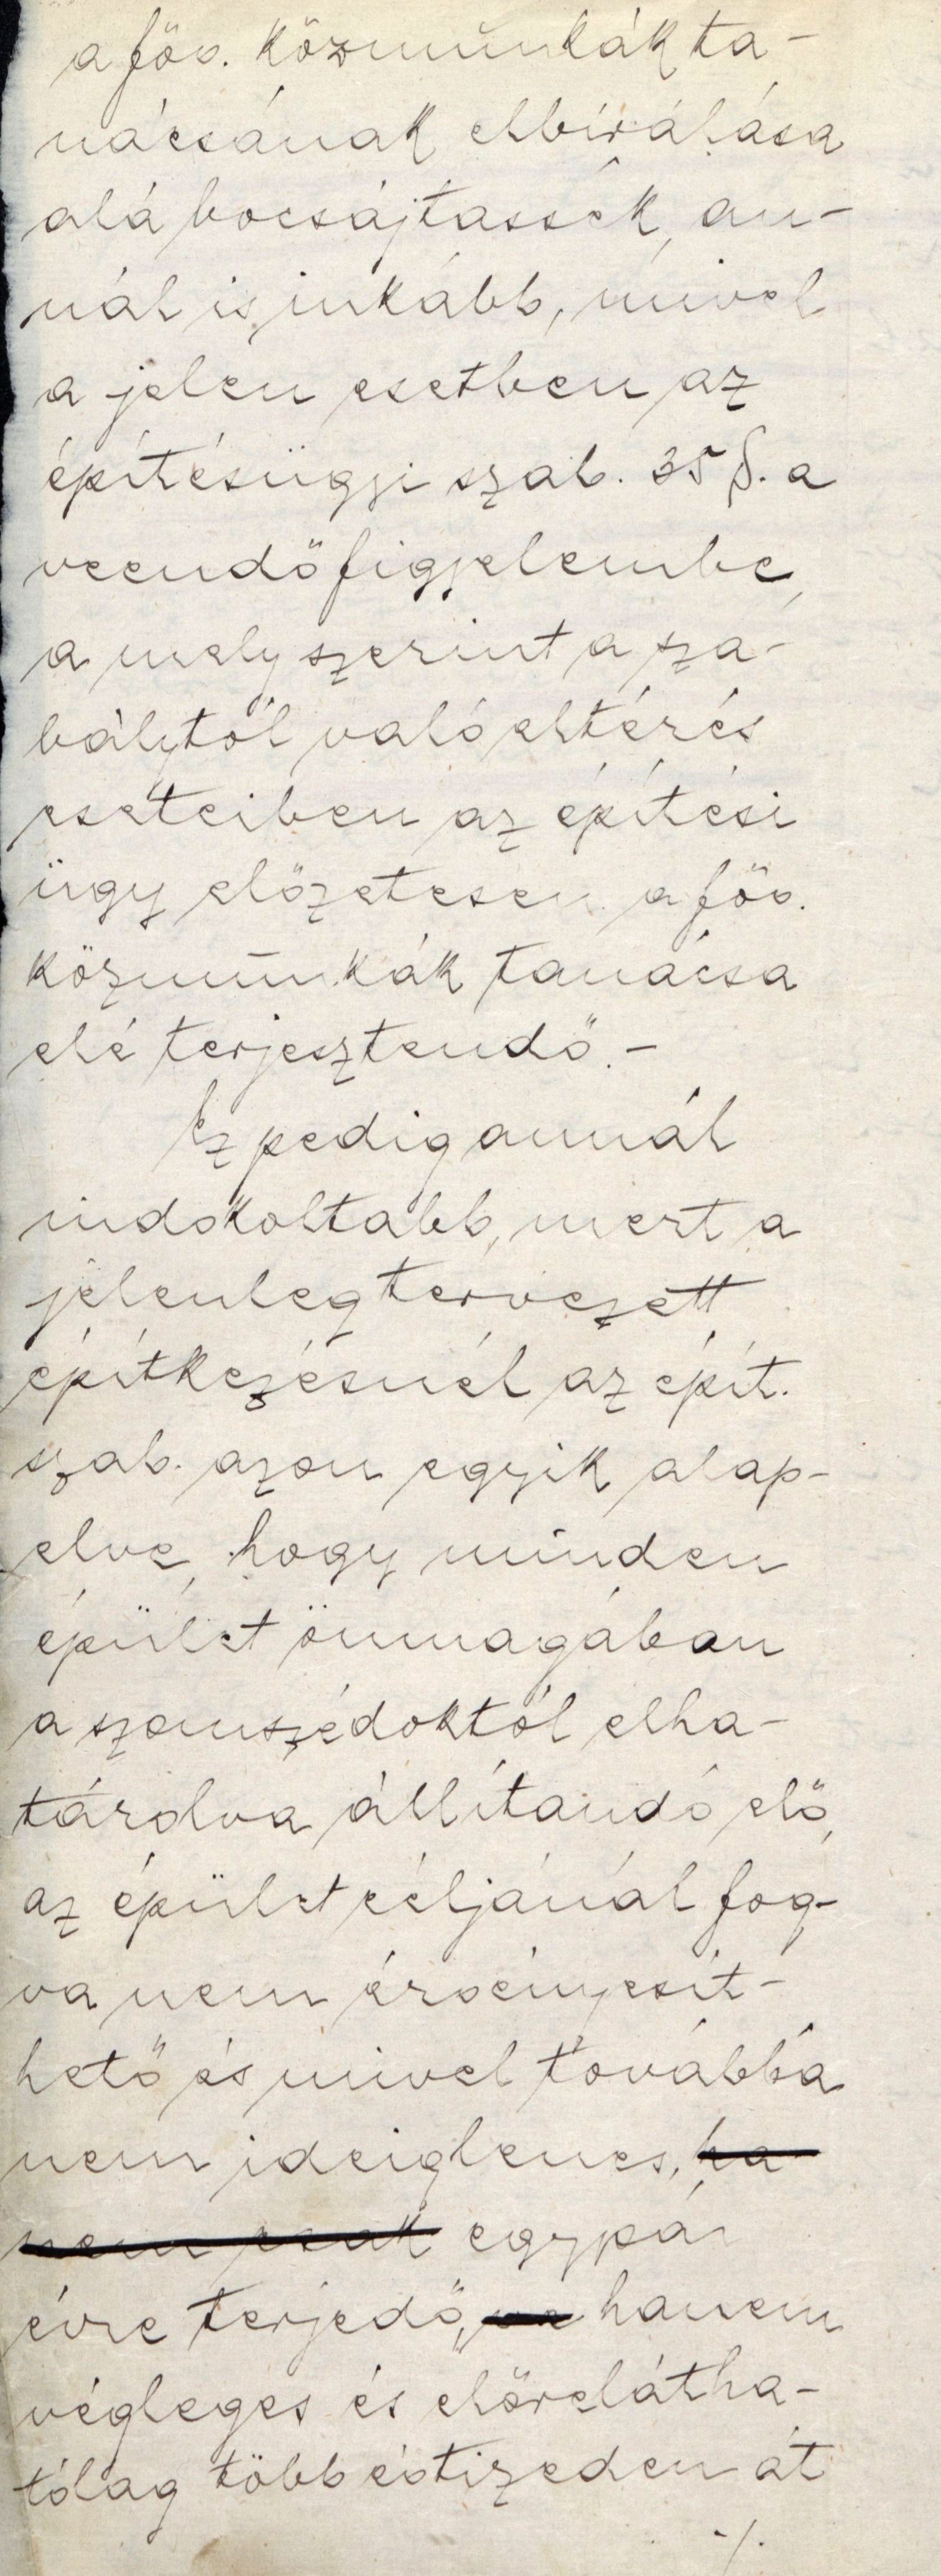 a föv. közmunkák ta-
nácsának elbírálása
alá bocsájtassék, an-
nál is inkább, mivel
a jelen esetben az
építésügyi szab. 35 §. a
veendő figyelembe,
a mely szerint a sza-
bálytól való eltérés
eseteiben az építési
ügy előzetesen a föv.
közmunkák tanácsa
elé terjesztendő. -
Ez pedig annál
indokoltabb, mert a
jelenleg tervezett
építkezésnél az épít.
szab. azon egyik alap-
elve, hogy minden
épület önmagában
a szomszédoktól elha-
tárolva állítandó elő,
az épület céljánál fog-
va nem érvényesít-
hető és mivel továbbá
nem ideiglenes, ha
nem csak egypár
évre terjedő, hanem
végleges és előrelátha-
tólag több évtizeden át
./.